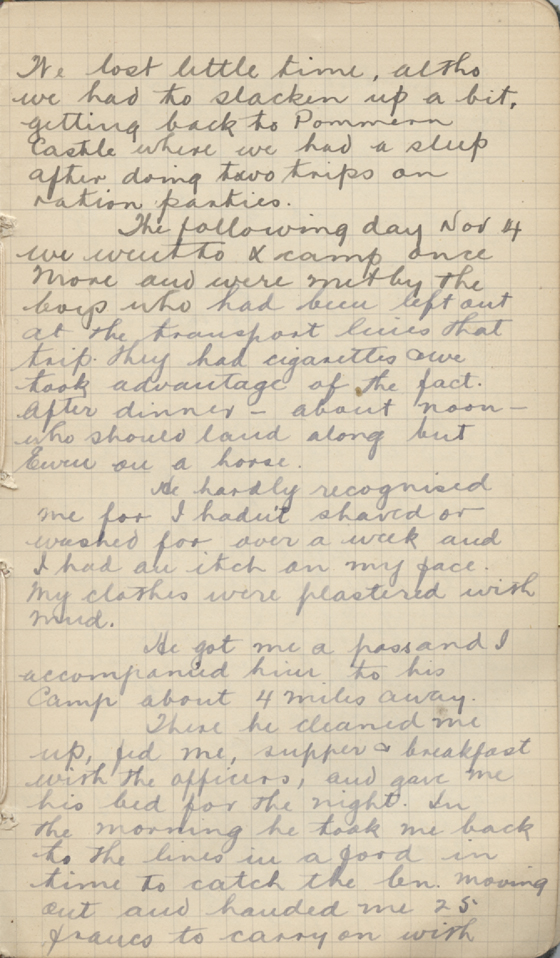 We lost little time, altho
we had to slacken up a bit,
getting back to Pommern
Castle where we had a sleep
after doing two trips on
ration parties.
The following day Nov 14
we went to X camp once
more and were met by the
boys who had been left out
at the transport lines that
trip. They had cigarettes & we
took advantage of the fact.
After dinner – about noon –
who should land along but
Ewen on a horse.
He hardly recognised
me for I hadn't shaved or
washed for over a week and
I had an itch on my face.
My clothes were plastered with
mud.
He got me a pass and I
accompanied him to his
Camp about 4 miles away.
There he cleaned me
up, fed me, supper & breakfast
with the officers, and gave me
his bed for the night. In
the morning he took me back
to the lines in a Ford in
time to catch the bn. moving
out and handed me 25
francs to carry on with